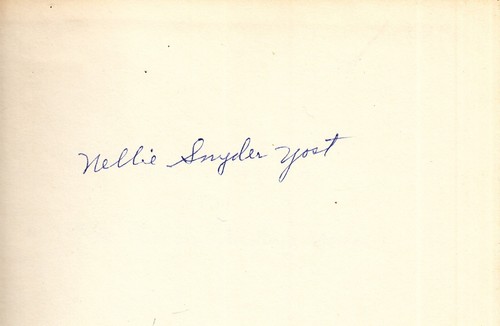 Nellie Snyder Yost